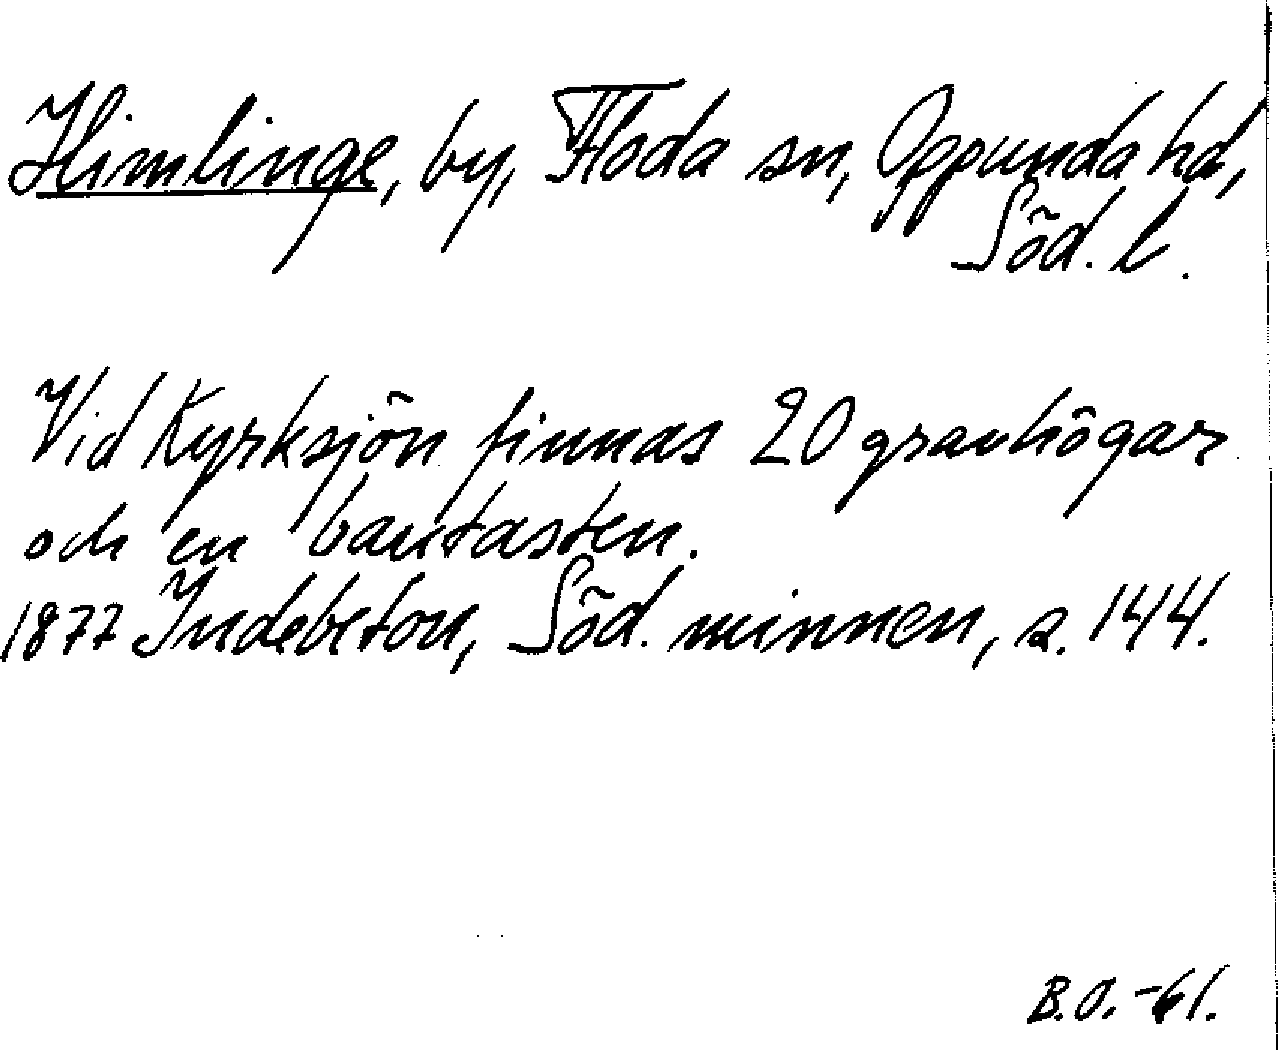 Himlinge, by, Floda sn, Oppunda hd,
Söd. l.
Vid Kyrksjön finnas 20 gravhögar
och en bautasten.
1877 Indebetou, Söd. minnen, s. 144.
B.O. -61.